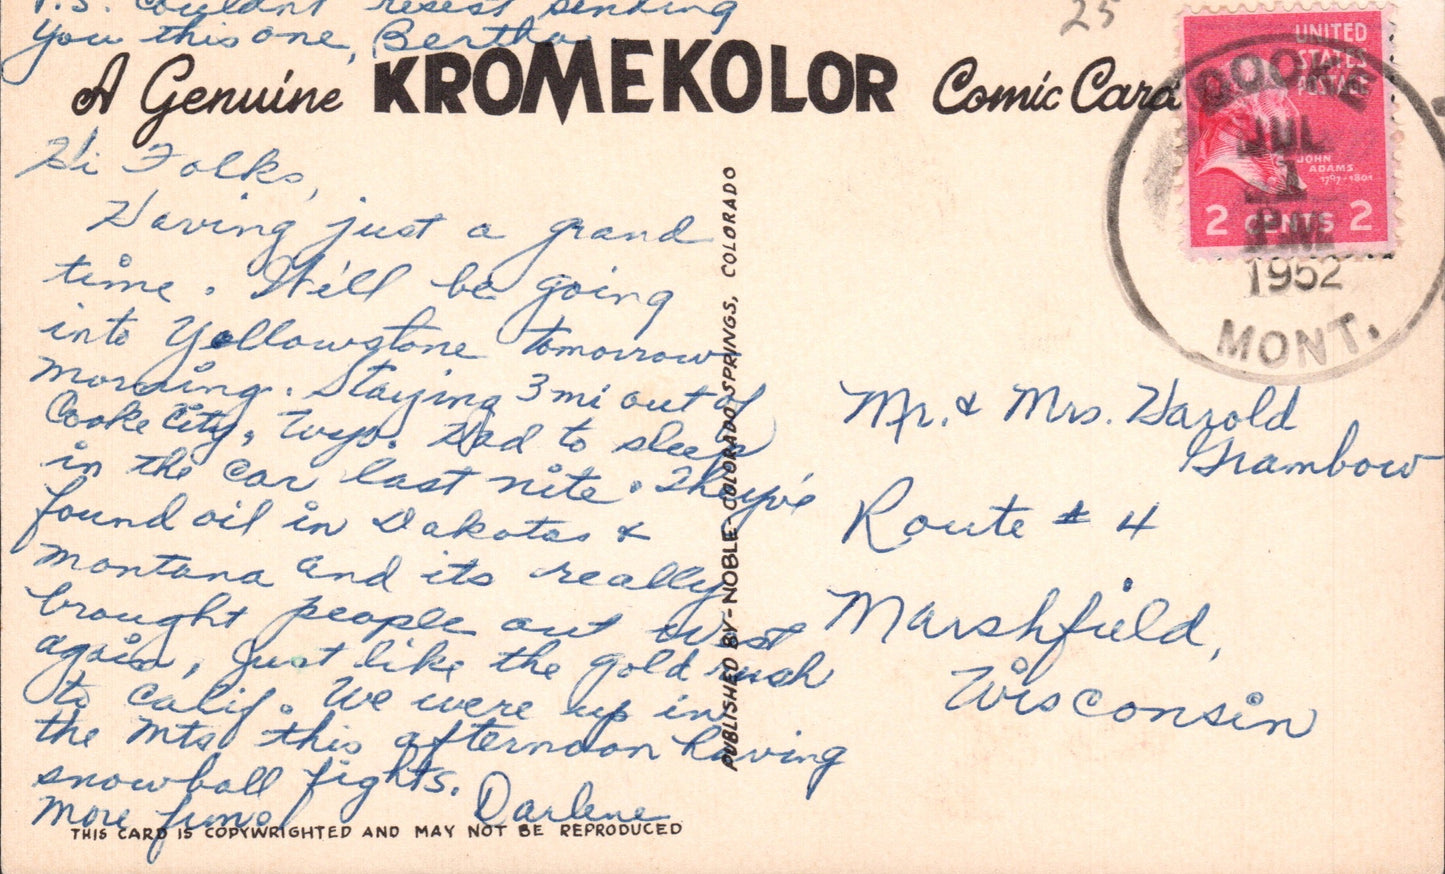 P.S. Couldn't resist sending
you this one, Bertha
25
A Genuine KROMEKOLOR Comic Card
UNITED
STATES
POSTAGE
JOHN
ADAMS
1797-1801
2 CENTS 2
COOKE
JUL
1
PM
1952
MONT.
Hi Folks,
Having just a grand
time. We'll be going
into Yellowstone tomorrow
morning. Staying 3 mi out of
Cooke City, Wyo. Had to sleep
in the car last nite. They've
found oil in Dakotas &
Montana and its really
brought people out West
again, just like the gold rush
to Calif. We were up in
the mts this afternoon having
snowball fights.
More fun! Darlene
PUBLISHED BY-NOBLE-COLORADO SPRINGS, COLORADO
Mr. & Mrs. Harold
Grambow
Route # 4
Marshfield,
Wisconsin
THIS CARD IS COPYWRIGHTED AND MAY NOT BE REPRODUCED